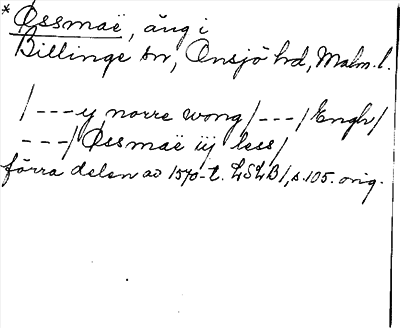 * Øssmaë, äng i
Billinge sn, Onsjö hd, Malm. l.
/---y norre wong/---/Engh/
---/Øssmaë iij less/
förra delen av 1570-t. LSLB/, s. 105. orig.